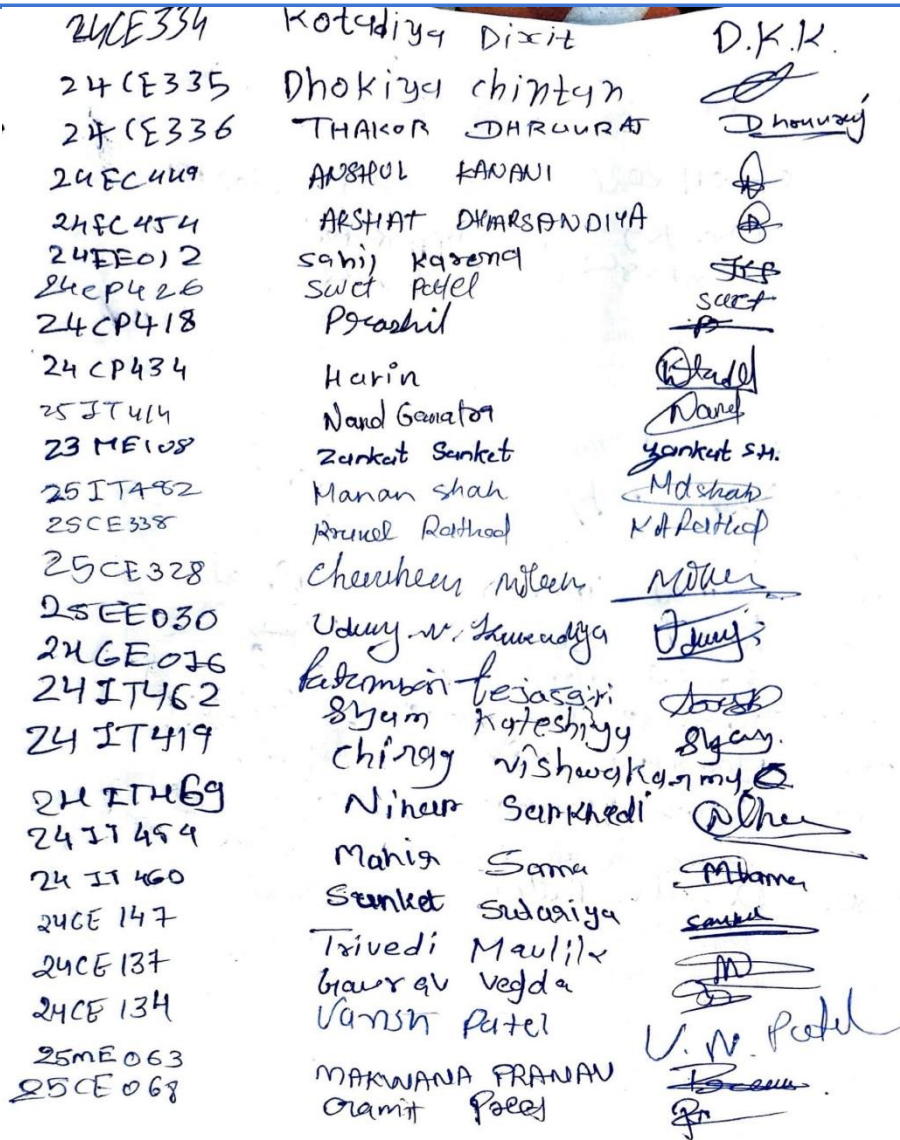 24CE334 Kotadiya Dixit D.K.K.
24CE335 Dhokiya chintan
24CE336 THAKOR DHRUVRAJ Dhruvraj
24EC449 ANSHUL KANANI
24EC454 ARSHAT DHARSANDIYA
24EE012 sahij Karena
24CP426 Swet Patel swet
24CP418 Prashil
24CP434 Harin
25IT414 Nand Nand
23ME108 Zankat Sanket Zankat S.H.
25IT482 Manan Shah Mdshah
25CE338 Krunel Rathod K A Rathod
25CE328
25EE030 Uday
24IT462 tejasgiri
24IT419 Shyam Kateshiya Shyam.
Chirag Vishwakarma
24IT469 Nihar Sankhedi
24IT454
24IT460 Mahir Sama MSama
24CE147 Sanket Sutariya Sanket
24CE137 Trivedi Maulik
24CE134 Gaurav Vegda
Vansh Patel V.N. Patel
25ME063 MAKWANA PRANAV
25CE068